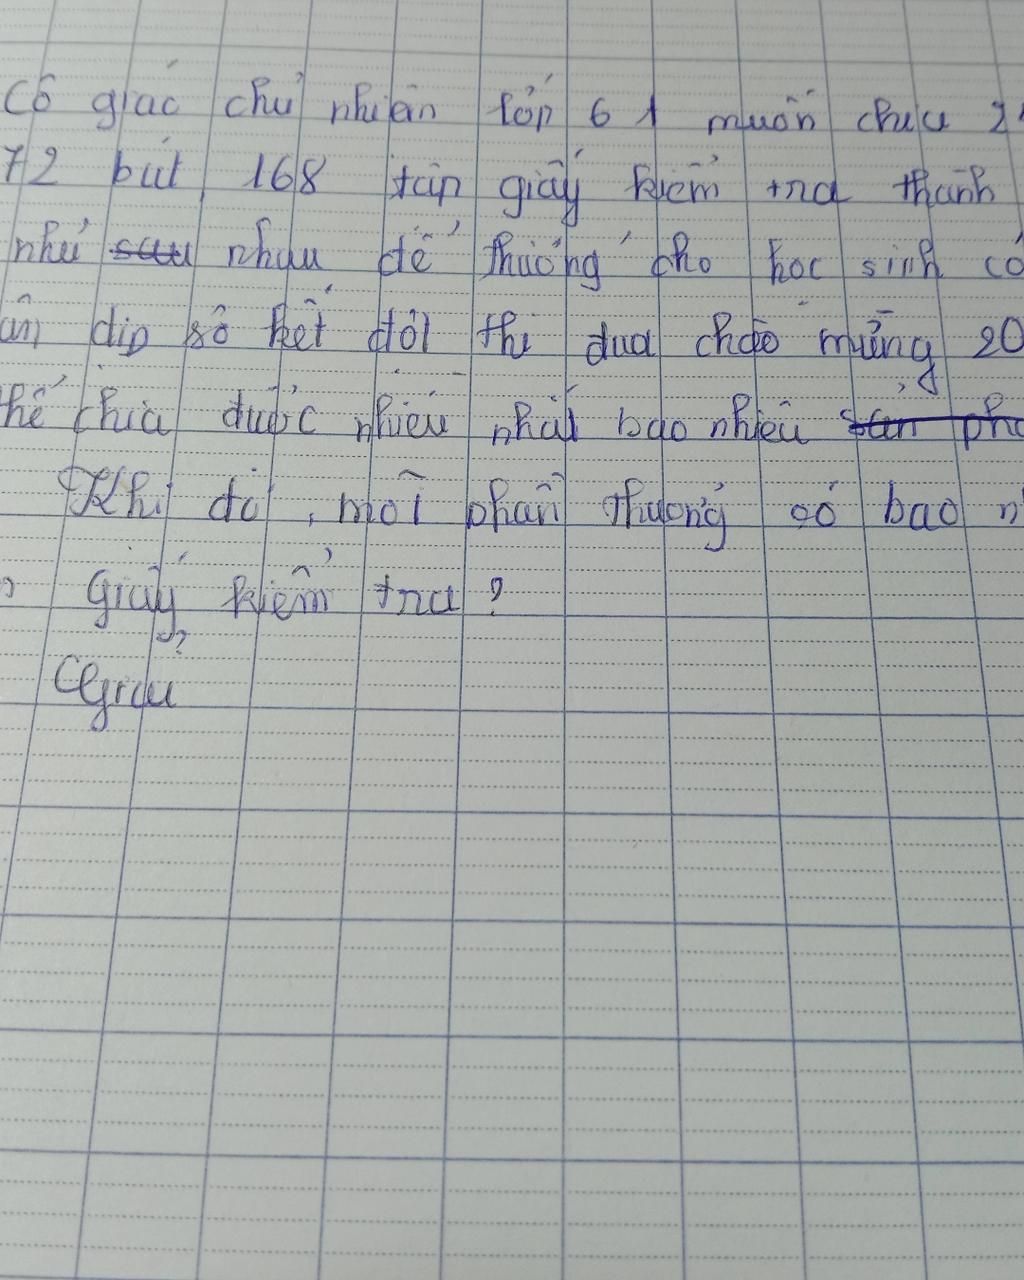 Cô giáo chủ nhiệm lớp 6 1 muốn chia 2
72 bút, 168 tập giấy kiểm tra thành
như nhau để thưởng cho học sinh có
dịp sơ kết đợt thi đua chào mừng 20
thể chia được nhiều nhất bao nhiêu
Khi đó, mỗi phần thưởng có bao
giấy kiểm tra?
Giải